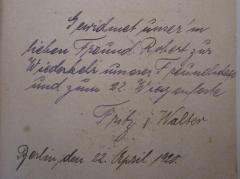 Gewidmet unser'm
lieben Freund Robert zur
Wiederkehr unserer Freundschaft
und zum 22. Wiegenfeste
Fritz & Walter
Berlin, den 22. April 1920.